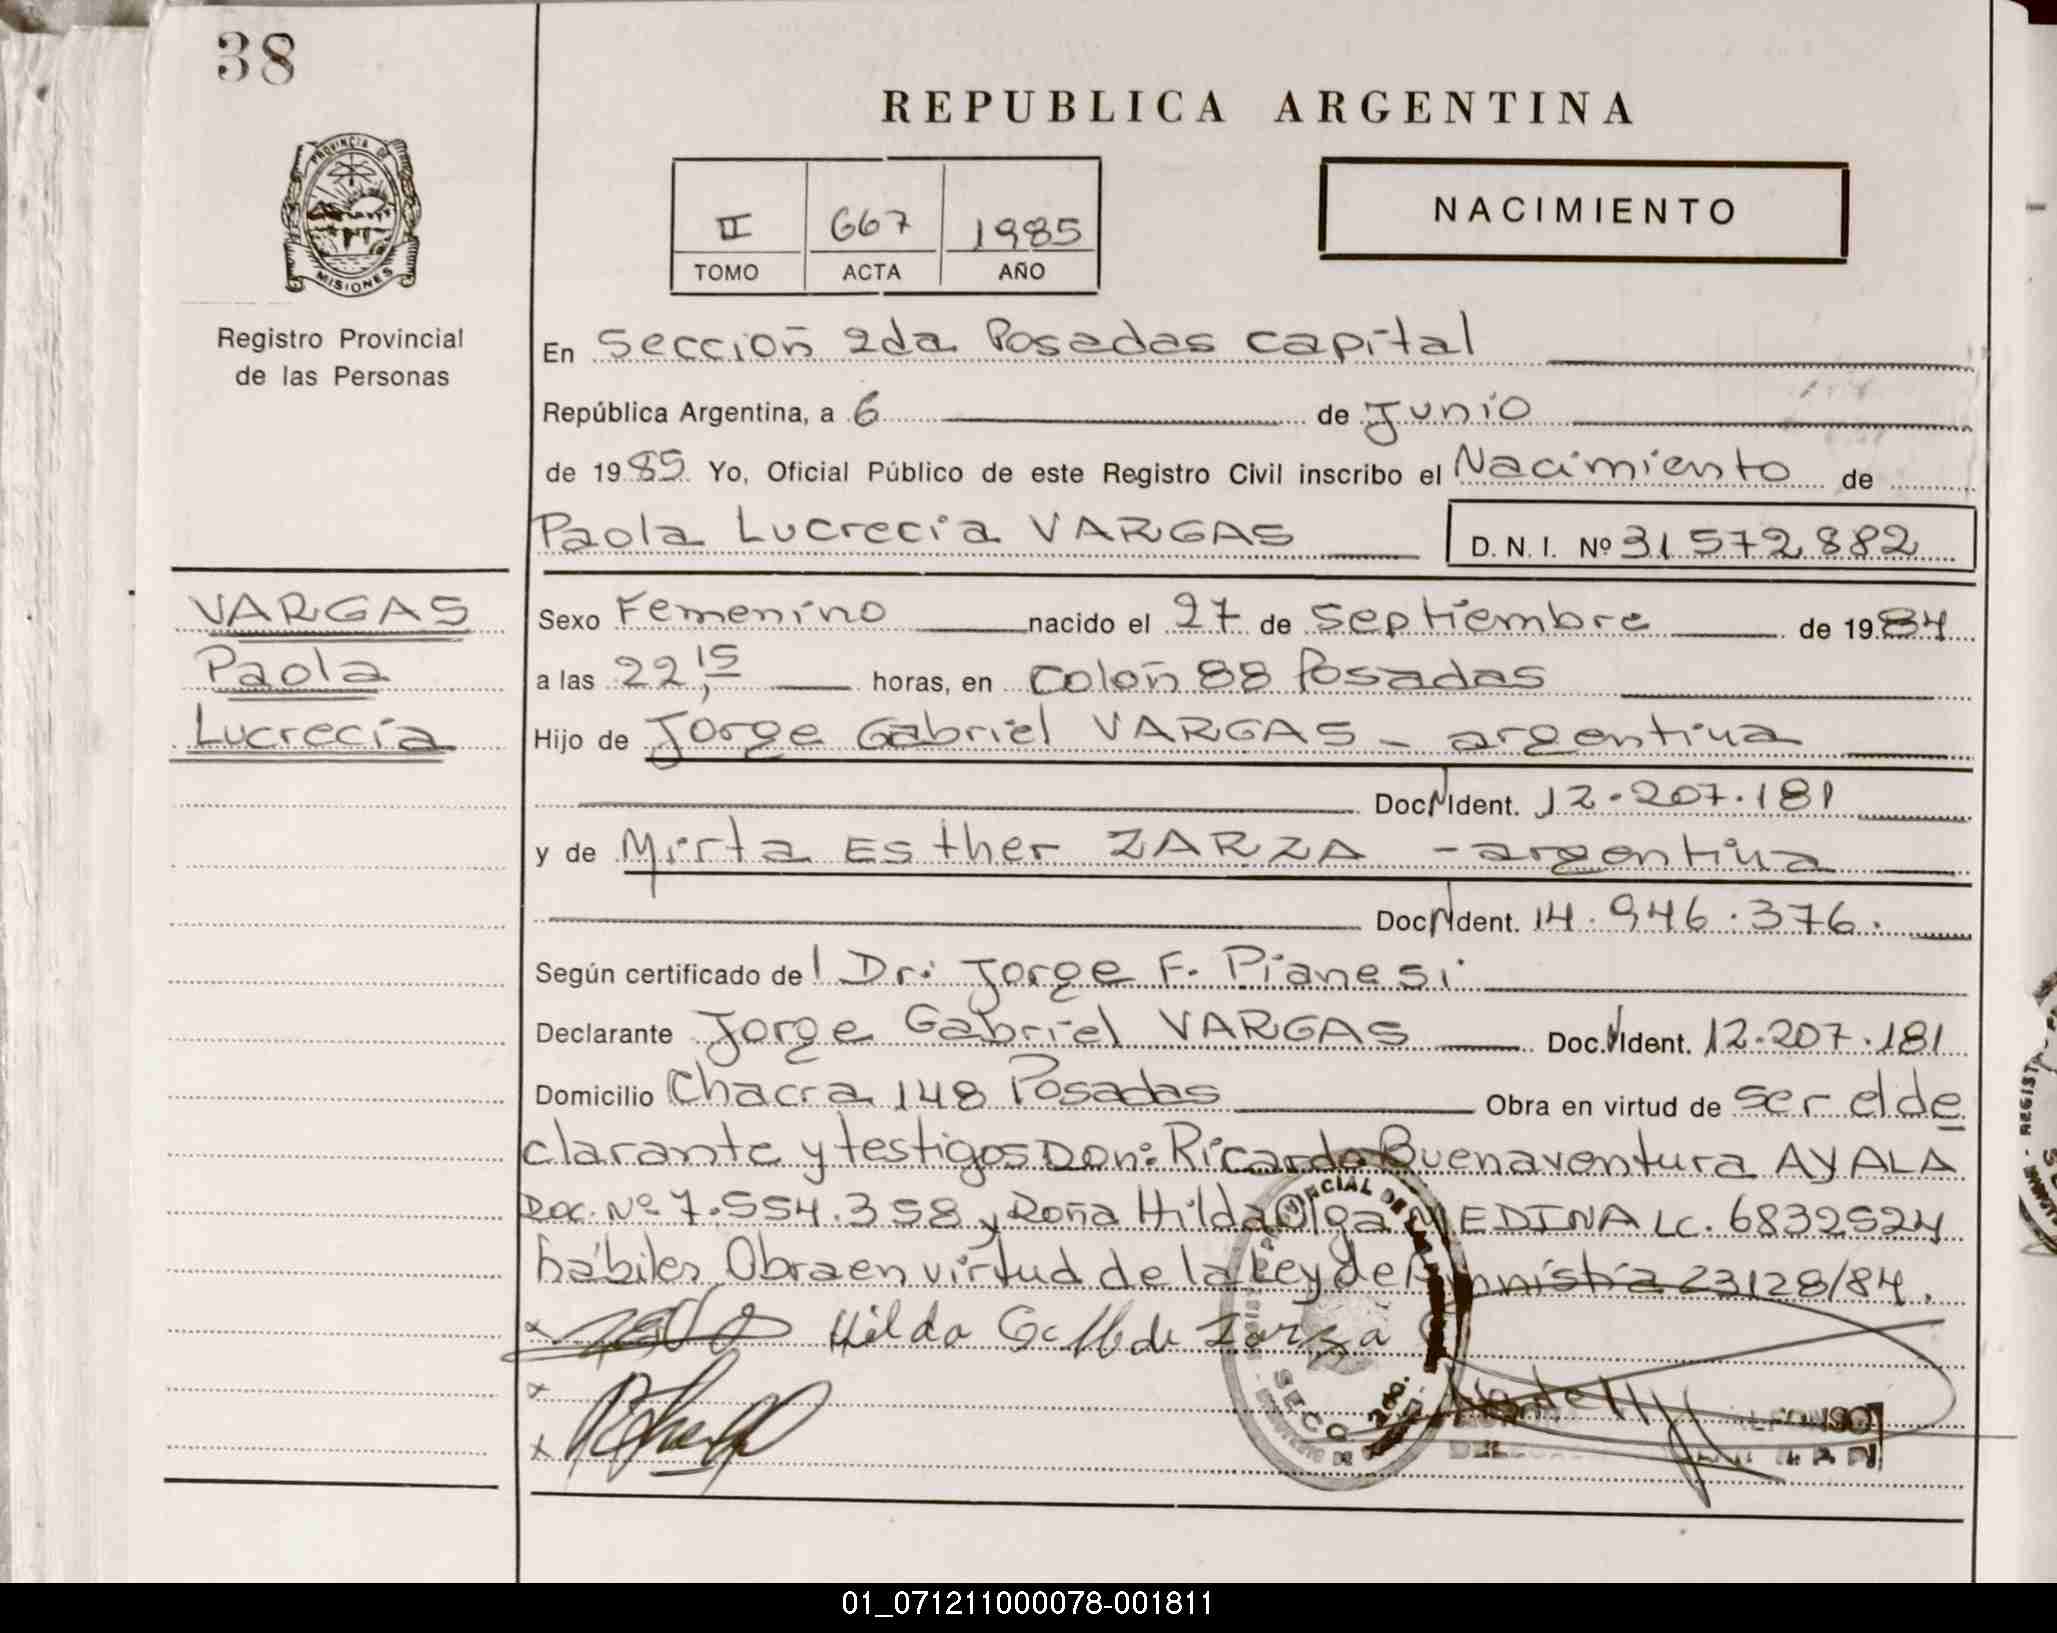 38
REPUBLICA ARGENTINA
PROVINCIA DE
MISIONES
II 667 1985
TOMO ACTA AÑO
NACIMIENTO
Registro Provincial
de las Personas
En Sección 2da Posadas capital
República Argentina, a 6 de Junio
de 1985. Yo, Oficial Público de este Registro Civil inscribo el Nacimiento de
Paola Lucrecia VARGAS D.N.I. Nº 31572882
VARGAS
Paola
Lucrecia
Sexo Femenino nacido el 27 de septiembre de 1984
a las 22,15 horas, en Colón 88 Posadas
Hijo de Jorge Gabriel VARGAS - argentina
Doc. Ident. 12.207.181
y de Mirta Esther ZARZA - argentina
Doc. Ident. 14.946.376.
Según certificado del Dr: Jorge F. Pianesi
Declarante Jorge Gabriel VARGAS Doc. Ident. 12.207.181
Domicilio Chacra 148 Posadas Obra en virtud de ser el de
clarante y testigos Don: Ricardo Buenaventura AYALA
Doc. Nº 7.554.358 y Doña Hilda Olga MEDINA LC. 6832524
hábiles. Obra en virtud de la Ley de Amnistía 23128/84.
Hilda de Zarza
01_071211000078-001811